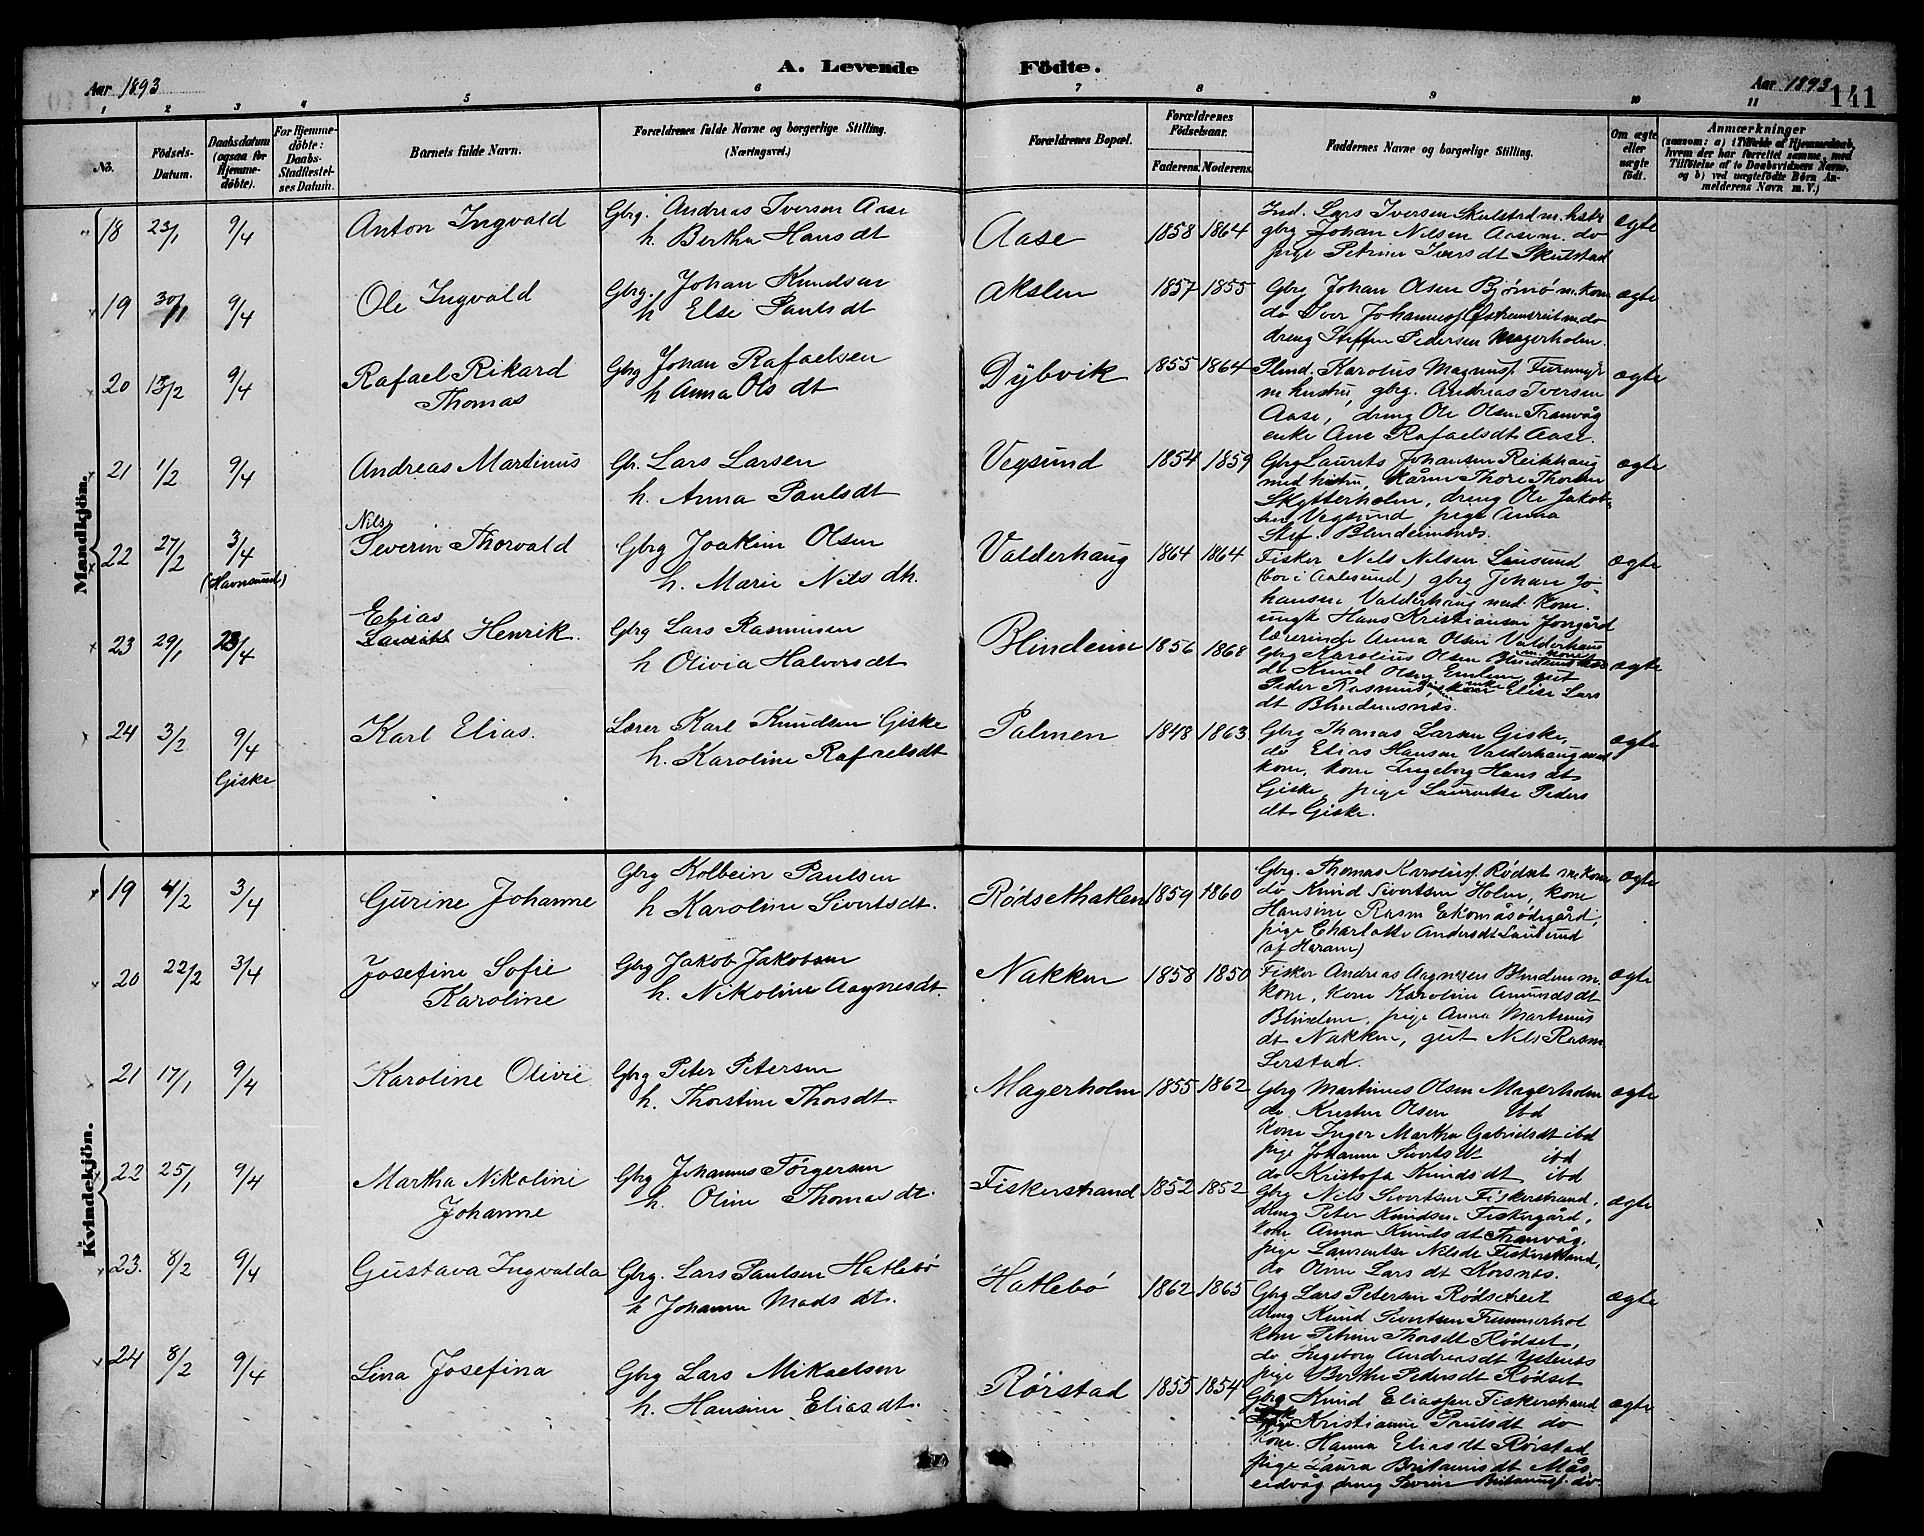 Aar 1893
A. Levende Födte.
Aar 1893
141
1 2 3 4 5 6 7 8 9 10 11
No.
Födsels-Datum.
Daabsdatum (ogsaa for Hjemmedöbte).
For Hjemmedöbte: Daabs-Stadfæstelses Datum.
Barnets fulde Navn.
Forældrenes fulde Navne og borgerlige Stilling. (Næringsvei.)
Forældrenes Bopæl.
Forældrenes Födselsaar.
Faderens. Moderens.
Faddernes Navne og borgerlige Stilling.
Om ægte eller uægte födt.
Anmærkninger
(saasom: a) i Tilfælde af Hjemmedaab, hvem der har forrettet samme, med Tilföielse af to Daabsvidners Navne, og b) ved uægtefödte Börn Anmelderens Navn m. V.)
Mandkjön.
18 23/1 9/4 Anton Ingvald Gbrg. Andreas Iversen Aase
h. Bertha Hansdt Aase 1858 1864 ægte
Ind. Lars Iversen Skulstad m. hstr
gbrg Johan Nilsen Aase m. do
pige Petrine Iversdt Skulstad
19 30/1 9/4 Ole Ingvald Gbrg. Johan Knudsen
h Else Paulsdt Akslen 1857 1855 ægte
Gbrg Johan Olsen Bjørnø m. kone
do Iver Johannesf. Østremsreit m. do
dreng Steffen Pedersen Magerholm.
20 13/2 9/4 Rafael Rikard
Thomas
Gbrg Johan Rafaelsen
h Anna Olsdt Dybvik 1855 1864 ægte
Karolus Magnusf. Furmyr
m hustru, gbrg. Andreas Iversen
Aase, dreng Ole Olsen Tranvåg
enke Ane Rafaelsdt Aase.
21 1/2 9/4 Andreas Martinus Gbr. Lars Larsen
h. Anna Paulsdt Vegsund 1854 1859 ægte
Gbrg Laurits Johansen Reikhaug
med hustru, Thore Thorsen
Skytterholm, dreng Ole Jakob-
sen Vegsund pige Anna
Blindeimsnes.
22 27/2 3/4
(Havnsund)
Nils
Severin Thorvald Gbrg Joakim Olsen
h. Marie Nilsdt. Valderhaug 1864 1864 ægte
Fisker Nils Nilsen
(bor i Aalesund) gbrg Johan Jo-
hansen Valderhaug med kone.
ungk Hans Kristiansen Jongård
lærerinde Anna Olsen Valderhaug
23 29/1 23/4 Elias
Henrik. Gbrg Lars Rasmusen
h Olivia Halvorsdt Blindeim 1856 1868 ægte
Gbrg Karolius Olsen Blindeim m. kone
dt Knud Olsen Emlem, gut
Peder Rasmus Elise Lars
dt Blindemsnæs.
24 3/2 9/4
Giske
Karl Elias. Lærer Karl Knudsen Giske
h. Karoline Rafaelsdt Palmen 1848 1863 ægte
Gbrg Thomas Larsen Giske,
do Elias Hansen Valderhaug med
kone, kone Ingeborg Hansdt
Giske, pige Laurentse Peders
dt Giske.
Kvindekjön.
19 4/2 3/4 Gurine Johanne Gbrg Kolbein Paulsen
h Karoline Sivertsdt. Rødsethaken 1859 1860 ægte
Gbrg. Thomas Karolusf. Rødset m. kone
do Knud Sivertsen Holen, kone
Hansine Rasm Ekornåsødegård,
pige Charlotte Andersdt
(af Haram)
20 22/2 3/4 Josefine Sofie
Karoline
Gbrg Jakob Jakobsen
h. Nikoline Aagnesdt. Nakken 1858 1850 ægte
Fisker Andreas Aagnesen Blindeim m.
kone, kone Karoline Amundsdt
Blindeim, pige Anna Martinus
dt Nakken, gut Nils Rasm
Lerstad.
21 17/1 9/4 Karoline Olivie Gbrg Peter Petersen
h. Thorstine Thorsdt. Magerholm 1855 1862 ægte
Gbrg Martinus Olsen Magerholm
do. Kristen Olsen ibd
kone Inger Martha Gabrielsdt ibd
pige Johanne Sivertsdt ibd
do Kristofa Knudsdt ibd
22 25/1 9/4 Martha Nikoline
Johanne
Gbrg Johannes Törgersen
h. Oline Thomasdt. Fiskerstrand 1852 1852 ægte
Gbrg Nils Sivertsen Fiskerstrand,
dreng Peter Knudsen Fiskergård,
kone Anna Knudsdt Tranvåg,
pige Laurentse Nilsdt Fiskerstrand,
do Oline Larsdt Korsnæs.
23. 8/2 9/4 Gustava Ingvalda Gbrg. Lars Paulsen Hatlebø
h Johanne Madsdt. Hatlebø 1862 1865 ægte
Gbrg Lars Petersen Rødsetreit
dreng Knud Sivertsen
kone Petrine Thorsdt Rødset,
do Ingeborg Andreasdt
pige Berthe Pedersdt Rødset
24 8/2 9/4 Lina Josefina Gbrg Lars Mikaelsen
h. Hansine Eliasdt. Rørstad 1855 1854 ægte
Gbrg Knud Eliassen Fiskerstrand
Kristianne Paulsdt do
kone. Hanna Eliasdt Rørstad
pige Laura Britanusdt Mås-
eidvåg dreng Severin Britanusf. do.